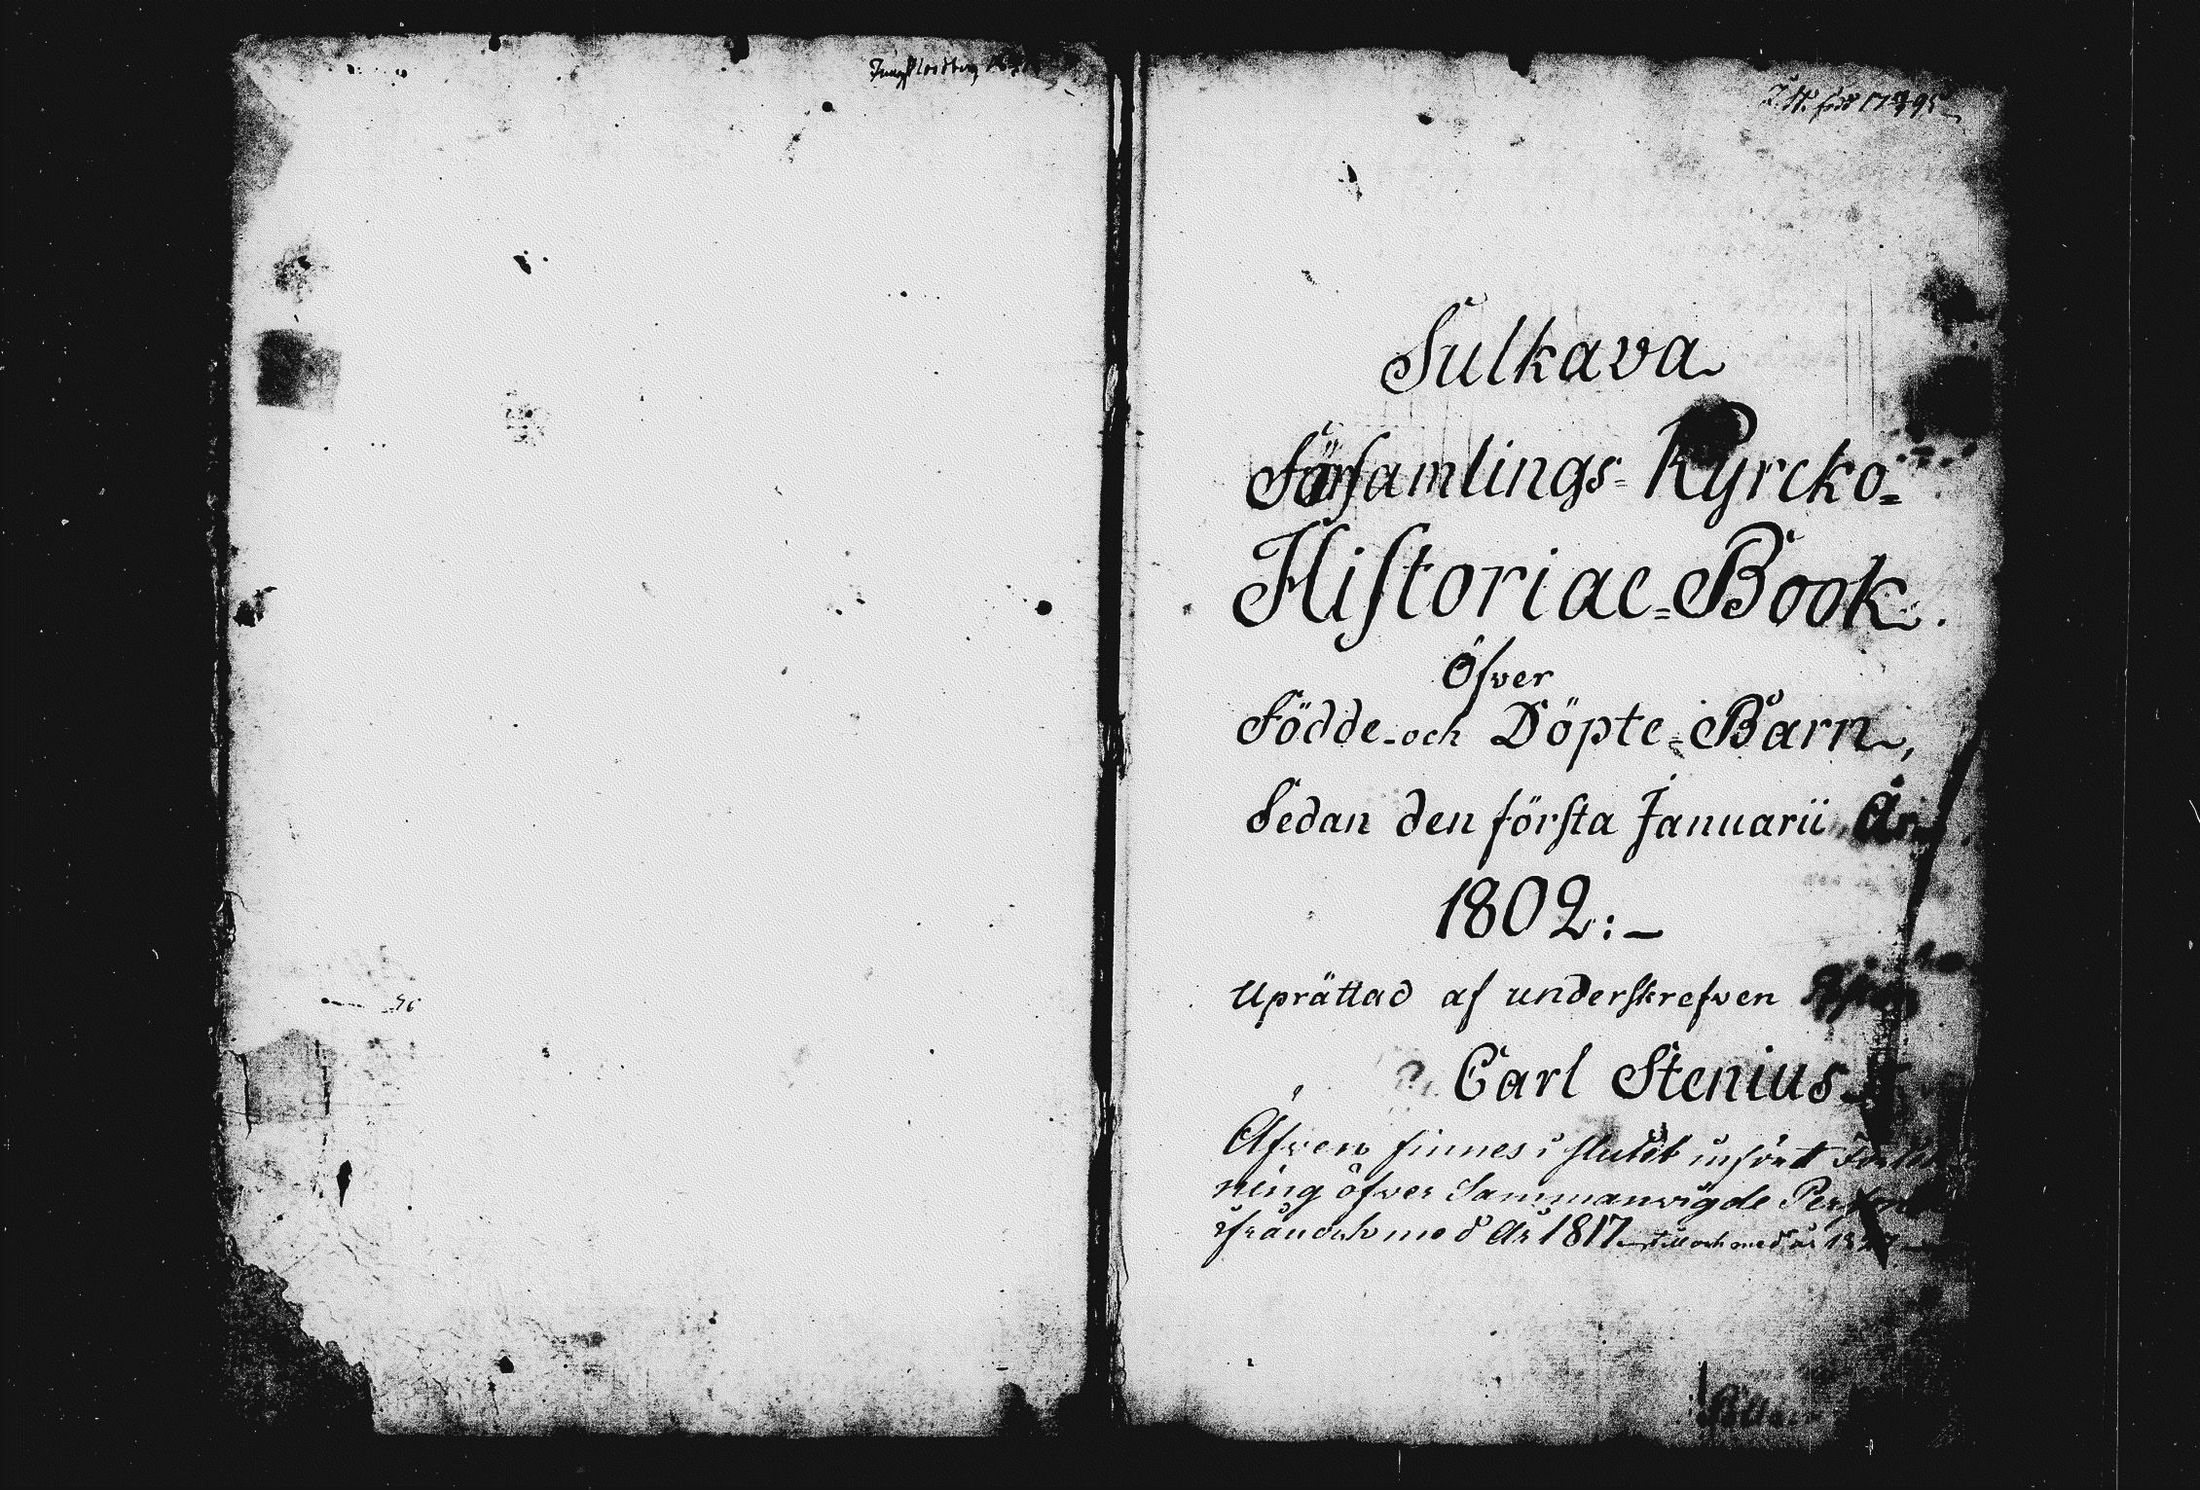 Sulkava
Församlings- Kyrcko-
Historiae-Book.
Öfver
Födde-och Döpte-Barn,
Sedan den första Januarii År
1802:-
Uprättad af underskrefven
Carl Stenius
Äfven finnes i slutet infördt
ning öfver Sammanvigde
ifrån och med År 1817 till och med år